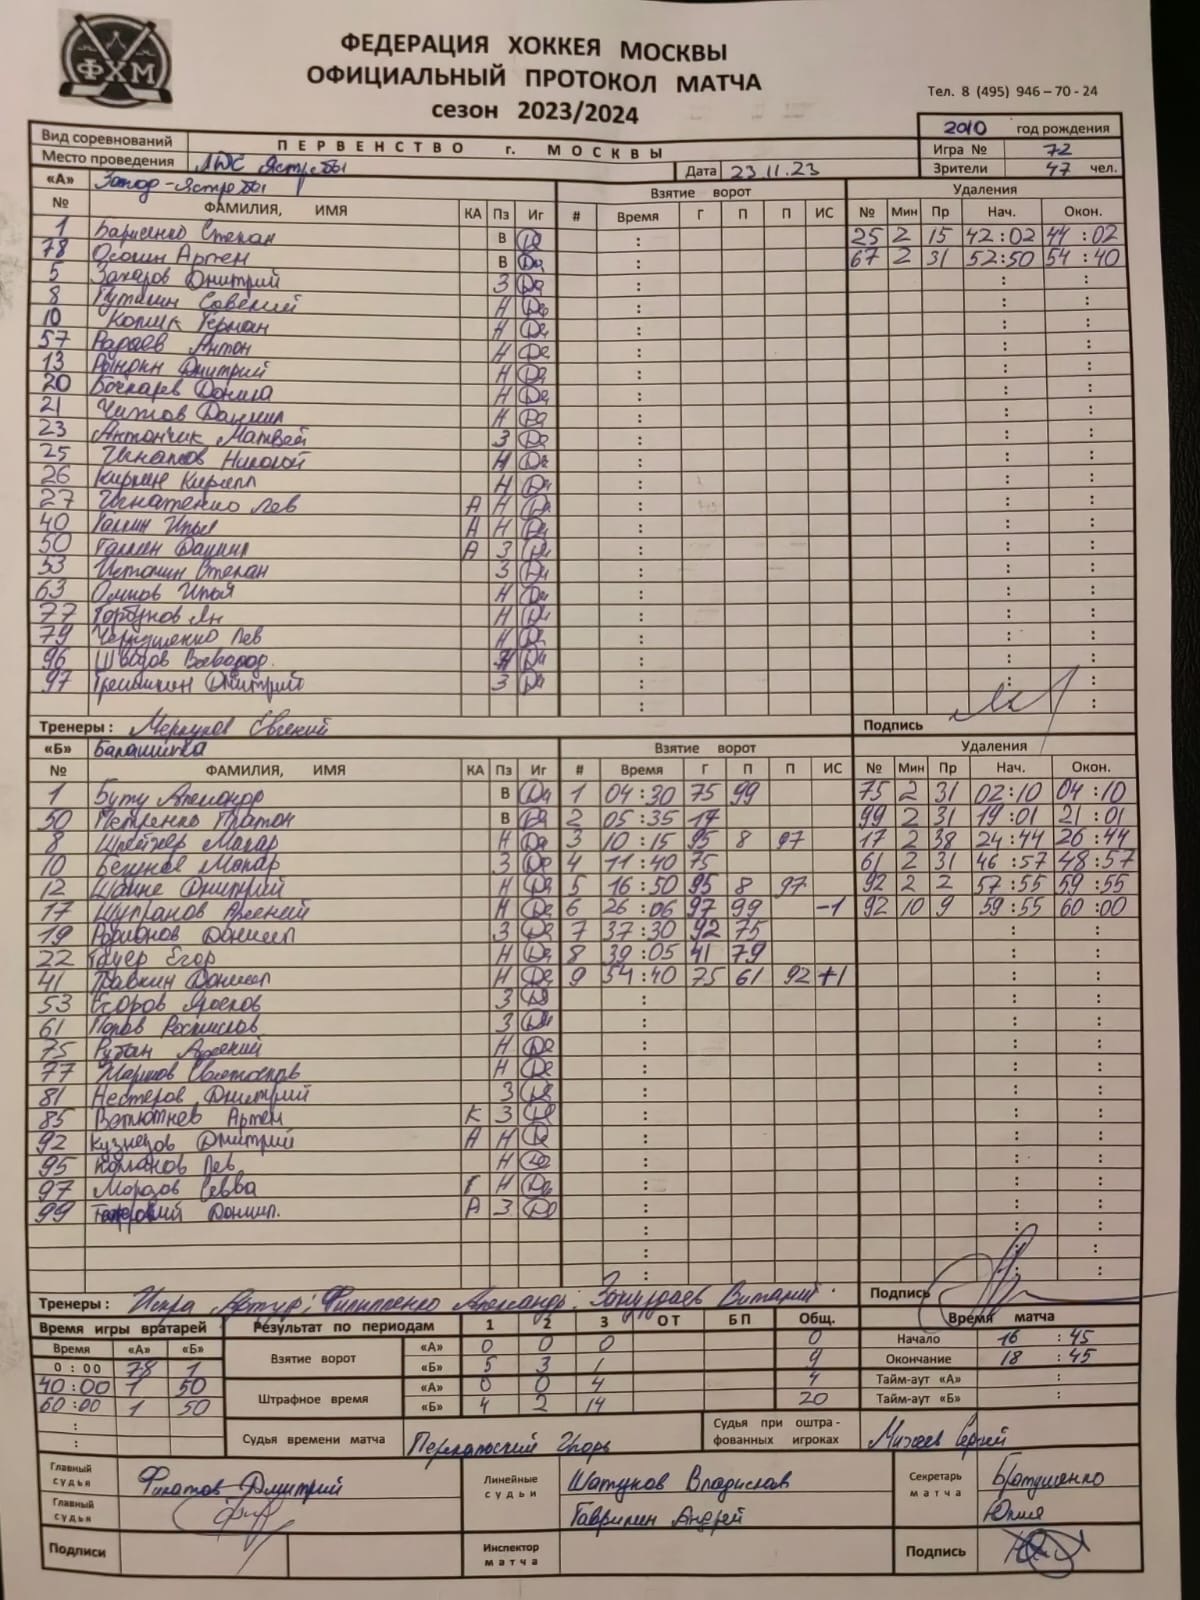 ФХМ
ФЕДЕРАЦИЯ ХОККЕЯ МОСКВЫ
ОФИЦИАЛЬНЫЙ ПРОТОКОЛ МАТЧА
сезон 2023/2024
Тел. 8 (495) 946-70-24
Вид соревнований ПЕРВЕНСТВО г. МОСКВЫ 2010 год рождения
Место проведения ЛДС Ястребы Дата 23.11.23 Игра № 72
Зрители 47 чел.
«А» Запад-Ястребы Взятие ворот Удаления
№ ФАМИЛИЯ, ИМЯ КА Пз Иг # Время Г П П ИС № Мин Пр Нач. Окон.
1 Борисенко Степан В Да : 25 2 15 42:02 44:02
78 Осокин Артем В Да : 67 2 31 52:50 54:40
5 Захаров Дмитрий З Да : : :
8 Савелий Н Да : : :
10 Герман Н Да : : :
57 Антон Н Да : : :
13 Дмитрий Н Да : : :
20 Бочкарев Данила Н Да : : :
21 Чижов Даниил Н Да : : :
23 Антончик Матвей З Да : : :
25 Игнатов Николай Н Да : : :
26 Киркин Кирилл Н Да : : :
27 Игнатенко Лев А Н Да : : :
40 Галкин Илья А Н Да : : :
50 Даниил А З Да : : :
53 Истомин Степан З Да : : :
63 Илья Н Да : : :
77 Горбунов Ян Н Да : : :
79 Лев Н Да : : :
96 Швецов Всеволод. Н Да : : :
97 Дмитрий З Да : : :
: :
Тренеры: Меркулов Евгений Подпись
«Б» Балашиха Взятие ворот Удаления
№ ФАМИЛИЯ, ИМЯ КА Пз Иг # Время Г П П ИС № Мин Пр Нач. Окон.
1 Александр В Да 1 04:30 75 99 75 2 31 02:10 04:10
50 Петренко Платон В Да 2 05:35 17 99 2 31 19:01 21:01
8 Макар Н Да 3 10:15 95 8 97 17 2 38 24:44 26:44
10 Макар З Да 4 11:40 75 61 2 31 46:57 48:57
12 Дмитрий Н Да 5 16:50 95 8 97 92 2 2 57:55 59:55
17 Арсений Н Да 6 26:06 97 99 -1 92 10 9 59:55 60:00
19 Родионов Даниил З Да 7 37:30 92 75 : :
22 Егор Н Да 8 39:05 41 79 : :
41 Травкин Даниил Н Да 9 54:40 75 61 92 +1 : :
53 Егоров Ярослав З Да : : :
61 Попов Ростислав З Да : : :
75 Рубан Арсений Н Да : : :
77 Святослав Н Да : : :
81 Нестеров Дмитрий З Да : : :
85 Ветютнев Артем К З Да : : :
92 Кузнецов Дмитрий А Н Да : : :
95 Лев Н Да : : :
97 Морозов Савва Н Да : : :
99 Даниил. А З Да : : :
: : :
: : :
: : :
Тренеры: Искра Артур; Филиппенко Александр; Виталий. Подпись
Время игры вратарей Результат по периодам 1 2 3 ОТ БП Общ. Время матча
Время «А» «Б» Взятие ворот «А» 0 0 0 0 Начало 16:45
0:00 78 1 «Б» 5 3 1 9 Окончание 18:45
40:00 1 50 Штрафное время «А» 0 0 4 4 Тайм-аут «А» :
60:00 1 50 «Б» 4 2 14 20 Тайм-аут «Б» :
:
: Судья времени матча Игорь Судья при оштрафованных игроках Михеев Сергей
Главный судья Филатов Дмитрий Линейные судьи Шатунов Владислав Секретарь матча Братушенко
Главный судья Гаврилин Андрей Юлия
Подписи Инспектор матча Подпись